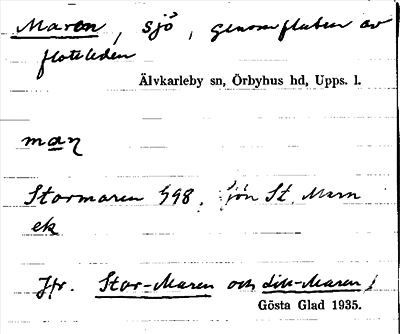 Maren, sjö, genomfluten av
flotleden
Älvkarleby sn, Örbyhus hd, Upps. l.
maꞃ
Stormaren 598. sjön St. Marn
ek
Jfr. Stor-Maren och Lill-Maren
Gösta Glad 1935.